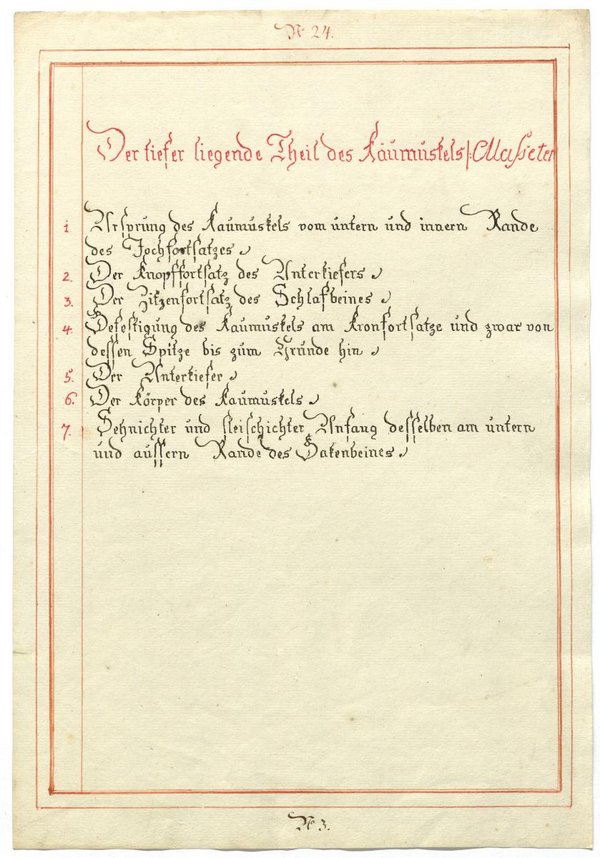 N. 24.
Der tiefer liegende Theil des Kaumuskels /: Masseter
1 Ursprung des Kaumuskels vom untern und innern Rande
des Jochfortsatzes
2. Der Knopffortsatz des Unterkiefers
3. Der Zitzenfortsatz des Schlafbeines
4. Befestigung des Kaumuskels am Kronfortsatze und zwar von
dessen Spitze bis zum Grunde hin
5. Der Unterkiefer
6. Der Körper des Kaumuskels
7. Sehnichter und fleischichter Anfang desselben am untern
und äussern Rande des Bakenbeines
N. 3.